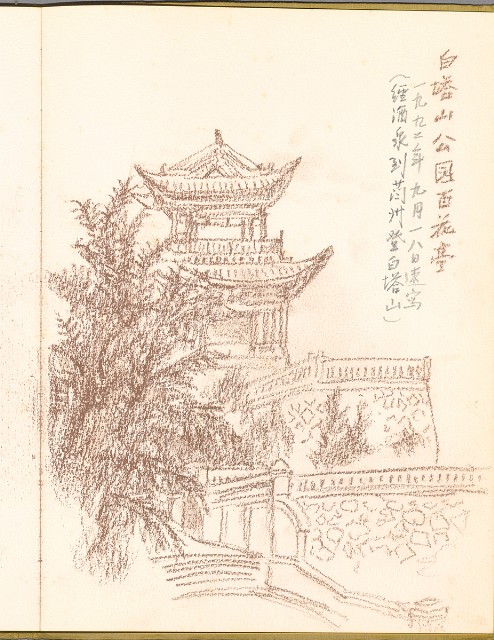 白塔山公园百花亭
一九九二年九月一八日速写
(經酒泉到蘭州登白塔山)